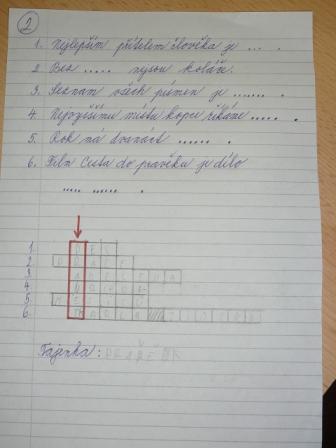 2
1. Nejlepším přítelem člověka je ... .
2. Bez ..... nejsou koláče.
3. Seznam všech písmen je ....... .
4. Nejvyššímu místu kopce říkáme ..... .
5. Rok má dvanáct ...... .
6. Film Cesta do pravěku je dílo
..... ...... .
1. PES
2.
3. ABECEDA
4.
5.
6. KARLA
Tajenka: